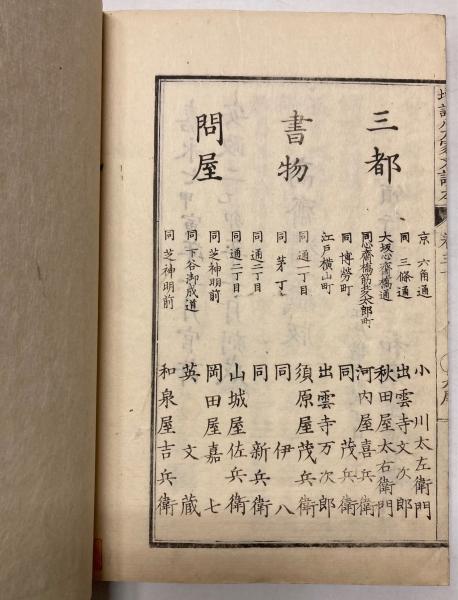 三都
書物
問屋
京 六角通 小川太左衛門
同 三條通 出雲寺文次郎
大坂心齋橋通 秋田屋太右衛門
同心齋橋筋安太郎町 河内屋喜兵衛
同 博勞町 同 茂兵衛
江戸横山町 出雲寺万次郎
同通一丁目 須原屋茂兵衛
同 茅丁 同 伊八
同通二丁目 同 新兵衛
同通二丁目 山城屋佐兵衛
同芝神明前 岡田屋嘉七
同下谷御成道 英文蔵
同芝神明前 和泉屋吉兵衛